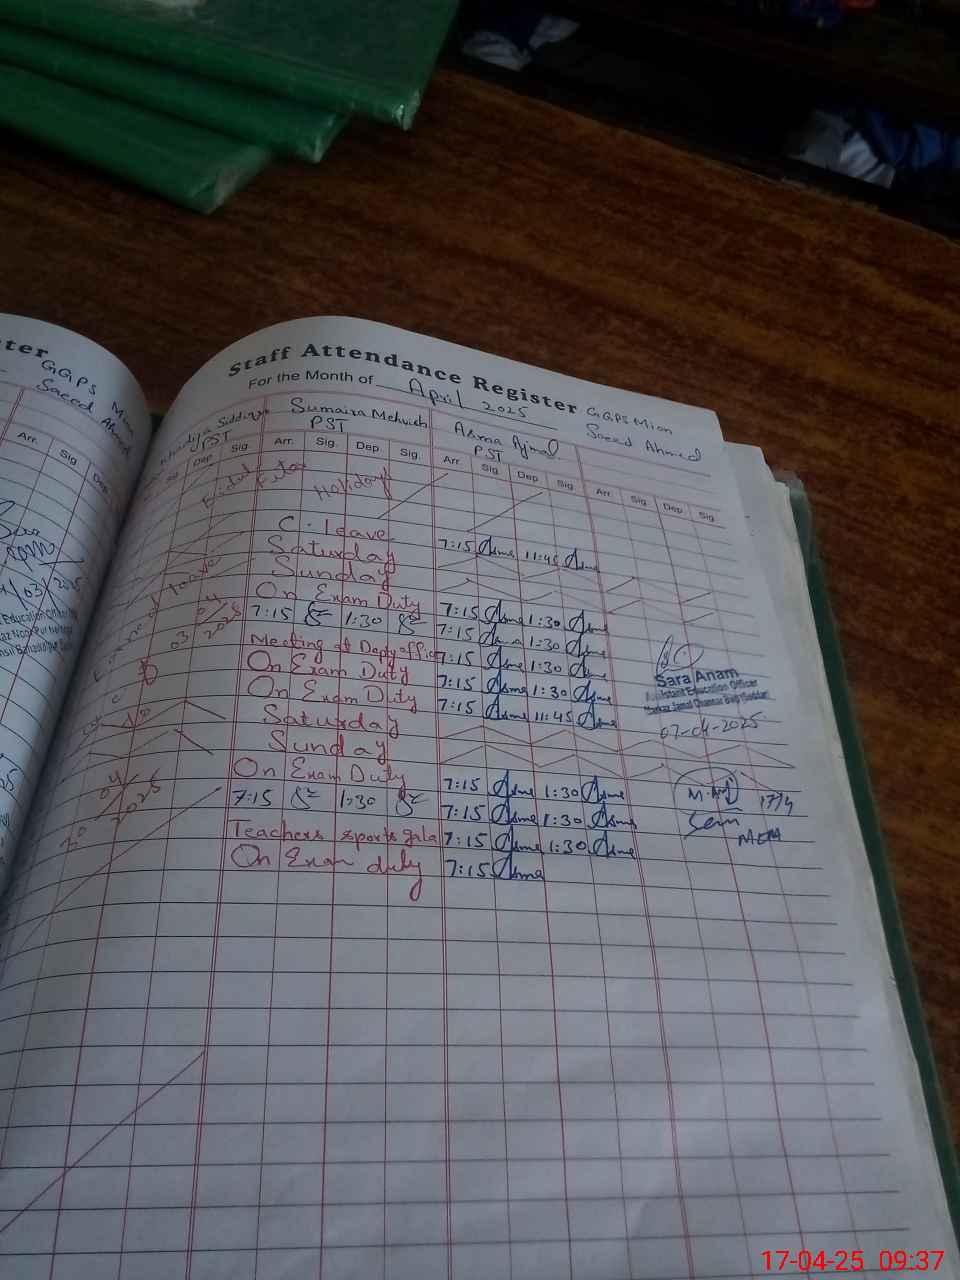 ter
GGPS Mian
Saeed Ahmed
Arr. Sig. Dep.
Staff Attendance Register
For the Month of April 2025
GGPS Mian
Saeed Ahmed
PST
Sumaira Mehwish
PST
Asma Ajmal
PST
Dep. Sig.
Arr. Sig. Dep. Sig. Arr. Sig. Dep. Sig. Arr. Sig. Dep. Sig.
Holidays
C. leave 7:15 Asma 11:45 Asma
Saturday
Sunday
On Exam Duty 7:15 Asma 1:30 Asma
7:15 1:30 7:15 Asma 1:30 Asma
Meeting at Depy office 7:15 Asma 1:30 Asma
On Exam Duty 7:15 Asma 1:30 Asma
On Exam Duty 7:15 Asma 11:45 Asma
Saturday
Sunday
On Exam Duty 7:15 Asma 1:30 Asma
7:15 1:30 7:15 Asma 1:30 Asma
Teachers sports gala 7:15 Asma 1:30 Asma
On Exam duty 7:15 Asma
Sara Anam
Assistant Education Officer
07-04-2025
17/4
MEA
17-04-25 09:37